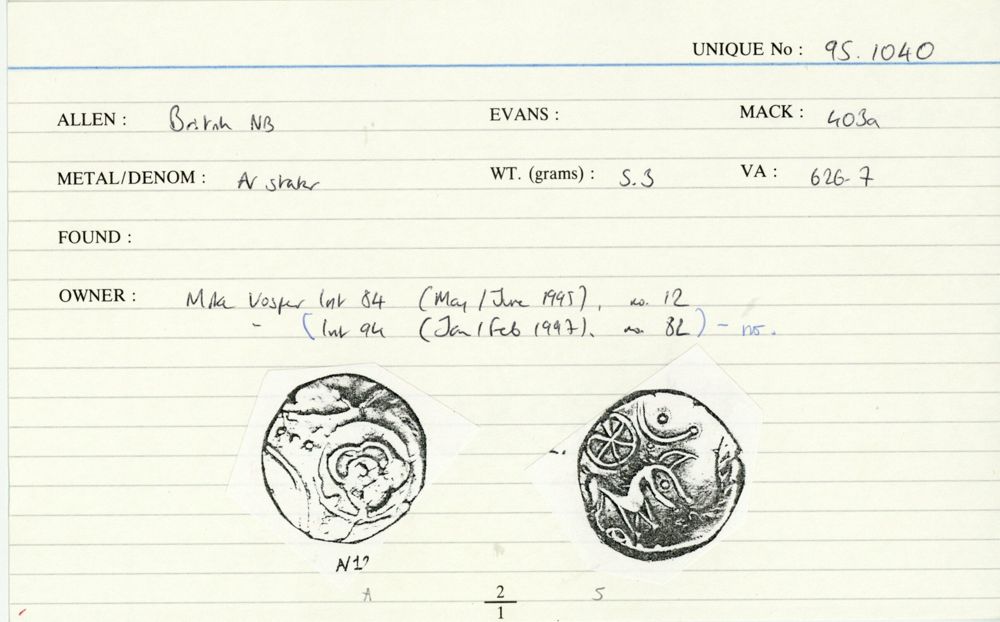 UNIQUE No : 95.1040
ALLEN : British NB EVANS : MACK : 403a
METAL/DENOM : AV stater WT. (grams) : 5.3 VA : 626-7
FOUND :
OWNER : Mike Vosper list 84 (May/June 1995), no. 12
" (list 94 (Jan/Feb 1997), no. 82) - no.
AV12
A 2/1 5